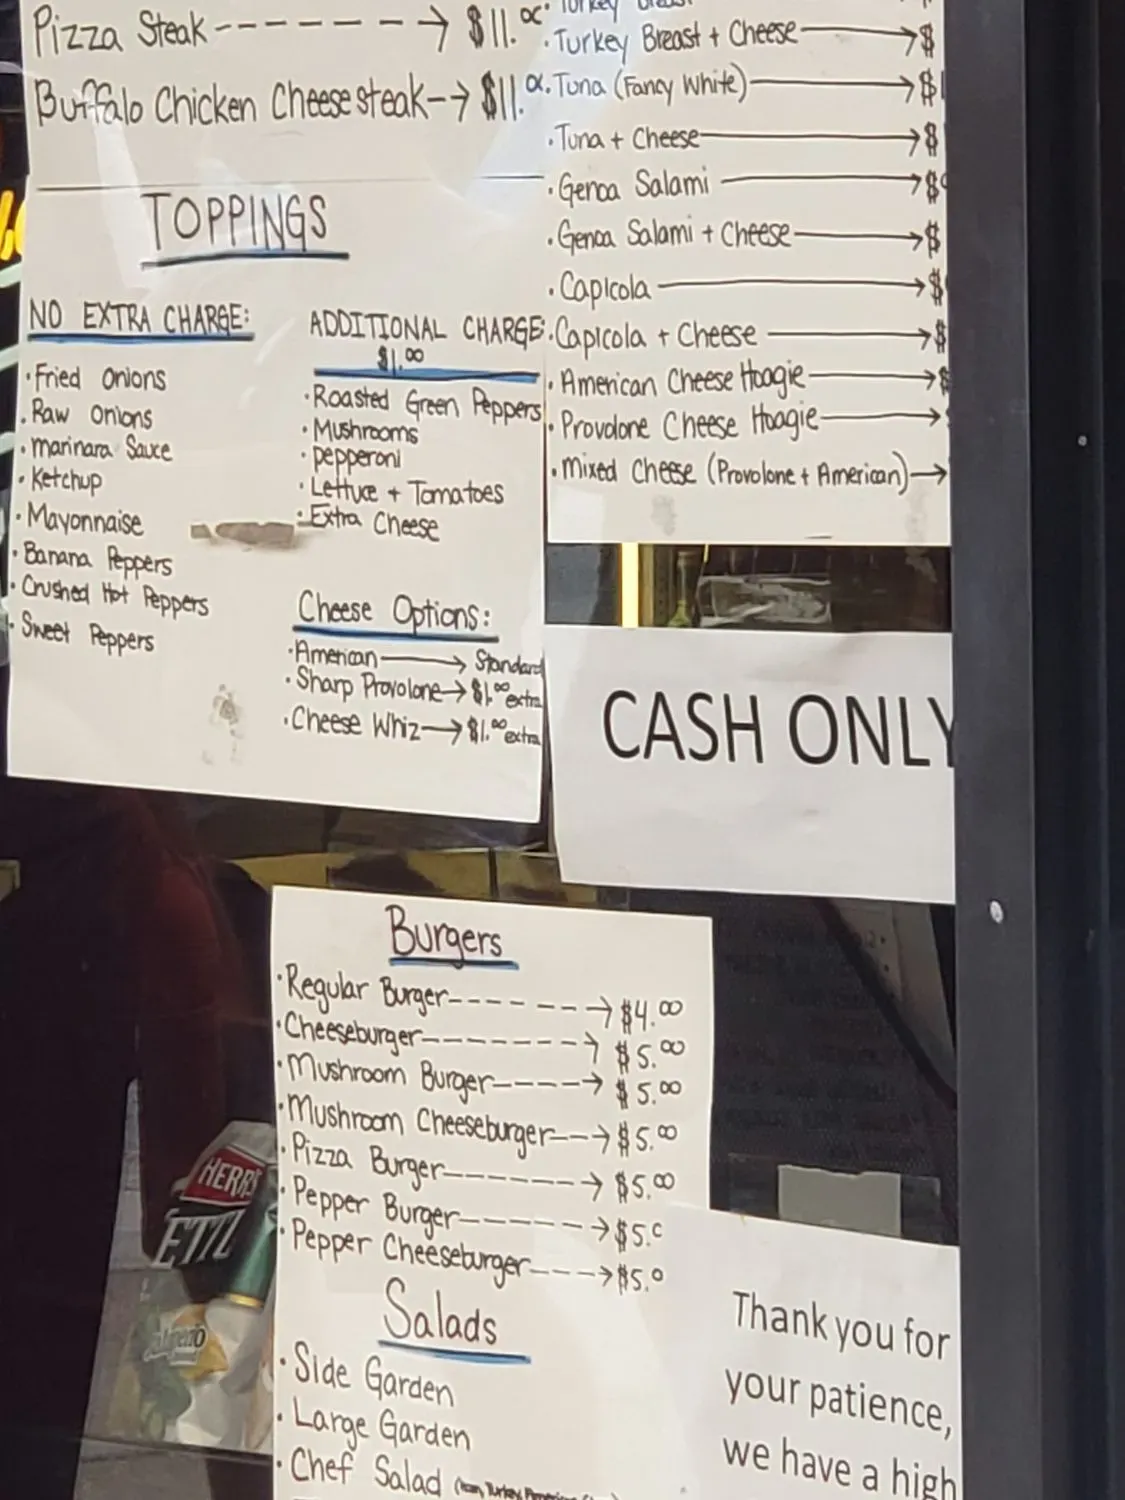 Pizza Steak ------- → $11.00
Buffalo Chicken Cheesesteak --→ $11.00
TOPPINGS
NO EXTRA CHARGE:
• Fried Onions
• Raw Onions
• Marinara Sauce
• Ketchup
• Mayonnaise
• Banana Peppers
• Crushed Hot Peppers
• Sweet Peppers
ADDITIONAL CHARGE:
$1.00
• Roasted Green Peppers
• Mushrooms
• pepperoni
• Lettuce + Tomatoes
• Extra Cheese
Cheese Options:
• American → Standard
• Sharp Provolone → $1.00 extra
• Cheese Whiz → $1.00 extra
Turkey Breast
• Turkey Breast + Cheese → $
• Tuna (Fancy White) → $1
• Tuna + Cheese → $
• Genoa Salami → $
• Genoa Salami + Cheese → $
• Capicola → $
• Capicola + Cheese → $
• American Cheese Hoagie → $
• Provolone Cheese Hoagie →
• Mixed Cheese (Provolone + American) →
CASH ONLY
Burgers
• Regular Burger ------- → $4.00
• Cheeseburger ------- → $5.00
• Mushroom Burger ----→ $5.00
• Mushroom Cheeseburger --→ $5.00
• Pizza Burger ------- → $5.00
• Pepper Burger ------ → $5.0
• Pepper Cheeseburger ---→ $5.0
Salads
• Side Garden
• Large Garden
• Chef Salad
HERR'S
Jalapeño
Thank you for
your patience,
we have a high